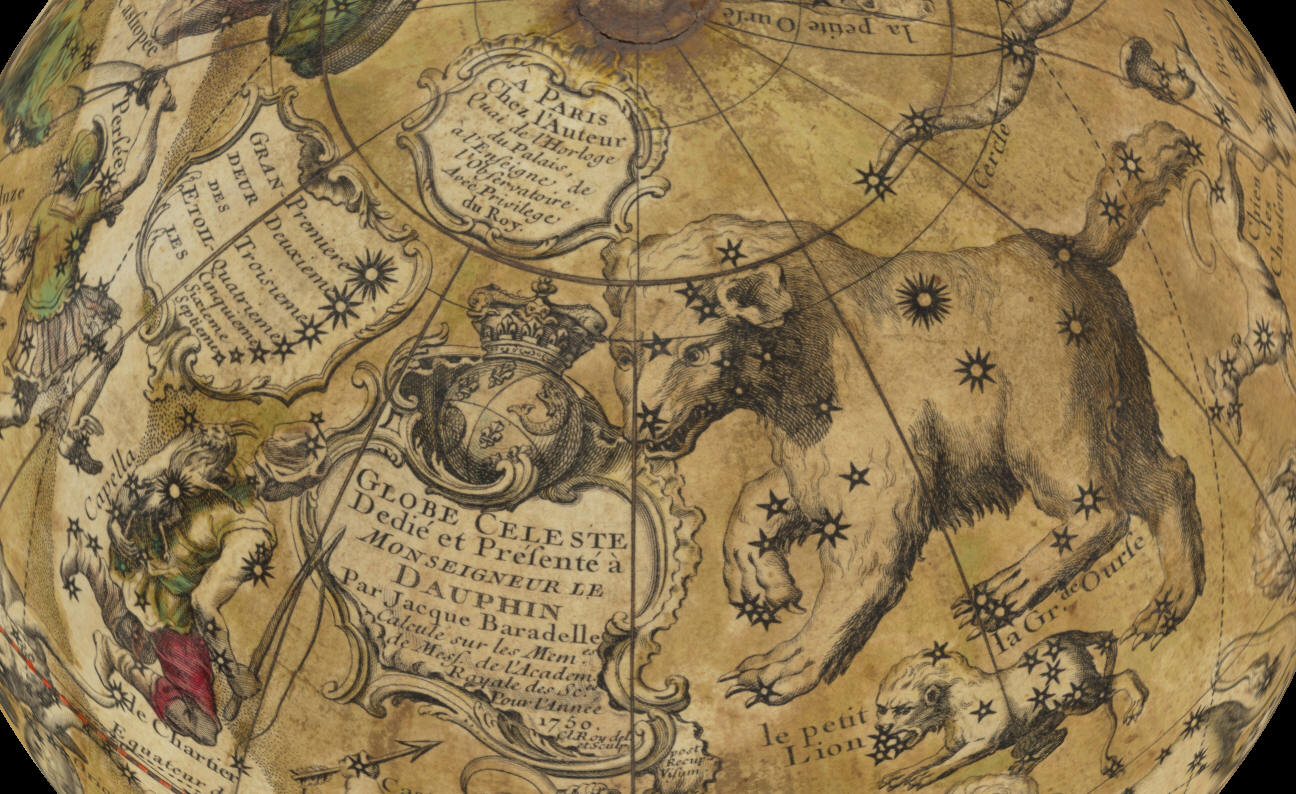 la petite Ourſe
A PARIS
Chez l'Auteur
Quai de l'Horloge
du Palais,
a l'Enſeigne de
l'Obſervatoire.
Avec Privilege
du Roy.
Perſée
GRAN
DEUR
DES
ETOIL
LES
Premiere
Deuxieme
Troiſieme
Quatrieme
Cinquieme
Sixieme
Septieme
Cercle
Chien
des
Capella
GLOBE CELESTE
Dedié et Préſenté à
MONSEIGNEUR LE
DAUPHIN
Par Jacque Baradelle
Calculé sur les Mem
de Meſſ. de l'Academ
Royale des Sc
Pour l'Année
1750.
Cl. Roy del.
et Sculp
post
Recup
Visum
la Gr. de Ourſe
le petit
Lion
de Chartier
Equateur d